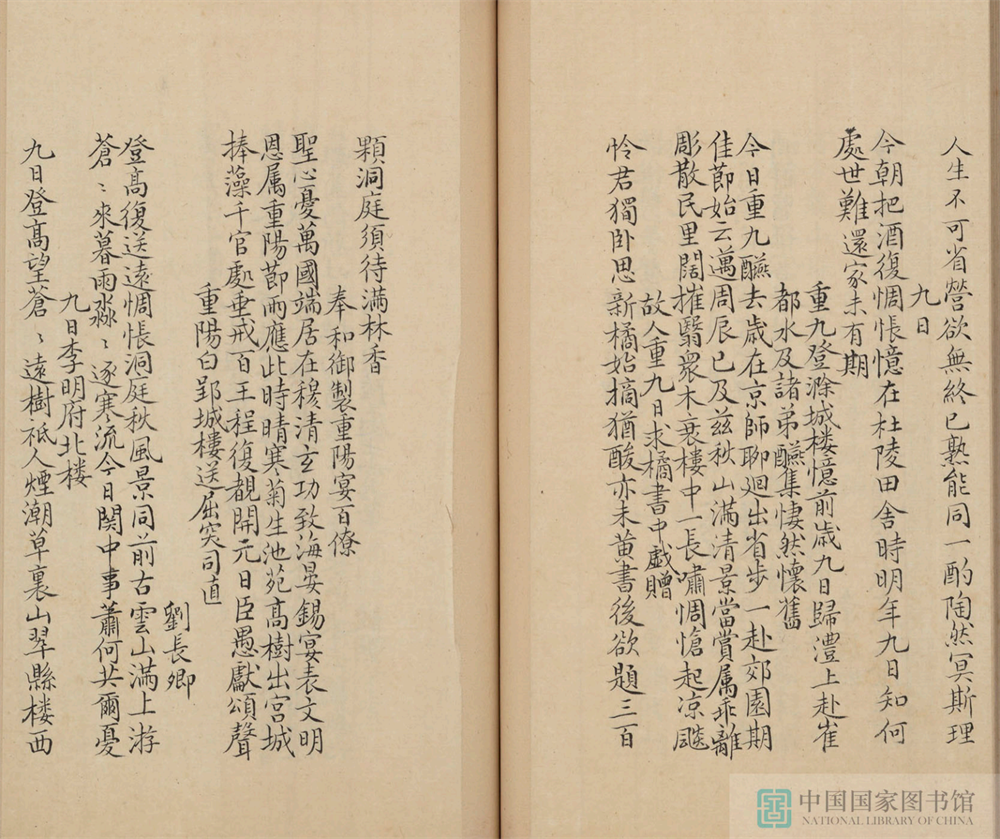 人生不可省營欲無終已孰能同一酌陶然冥斯理
九日
今朝把酒復惆悵憶在杜陵田舍時明年九日知何
處世難還家未有期
重九登滁城楼憶前歲九日歸澧上赴崔
都水及諸弟醼集悽然懷舊
今日重九醼去歲在京師聊迴出省步一赴郊園期
佳節始云邁周辰已及兹秋山滿清景當賞属乖離
彫散民里闊摧翳衆木衰樓中一長嘯惆愴起凉颸
故人重九日求橘書中戯贈
怜君獨卧思新橘始摘猶酸亦未黄書後欲題三百
顆洞庭須待滿林香
奉和御製重陽宴百僚
聖心憂萬國端居在穆清玄功致海晏錫宴表文明
恩属重陽節雨應此時晴寒菊生池苑高樹出宫城
捧藻千官處垂戒百王程復覩開元日臣愚獻頌聲
重陽日鄂城樓送屈突司直
劉長卿
登高復送遠惆悵洞庭秋風景同前古雲山滿上游
蒼〻來暮雨淼〻逐寒流今日関中事蕭何共爾憂
九日李明府北楼
九日登高望蒼〻遠樹祇人煙潮草裏山翠縣楼西
中国国家图书馆
NATIONAL LIBRARY OF CHINA